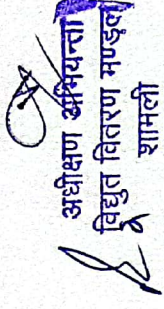 अधीक्षण अभियन्ता
विद्युत वितरण मण्डल
शामली